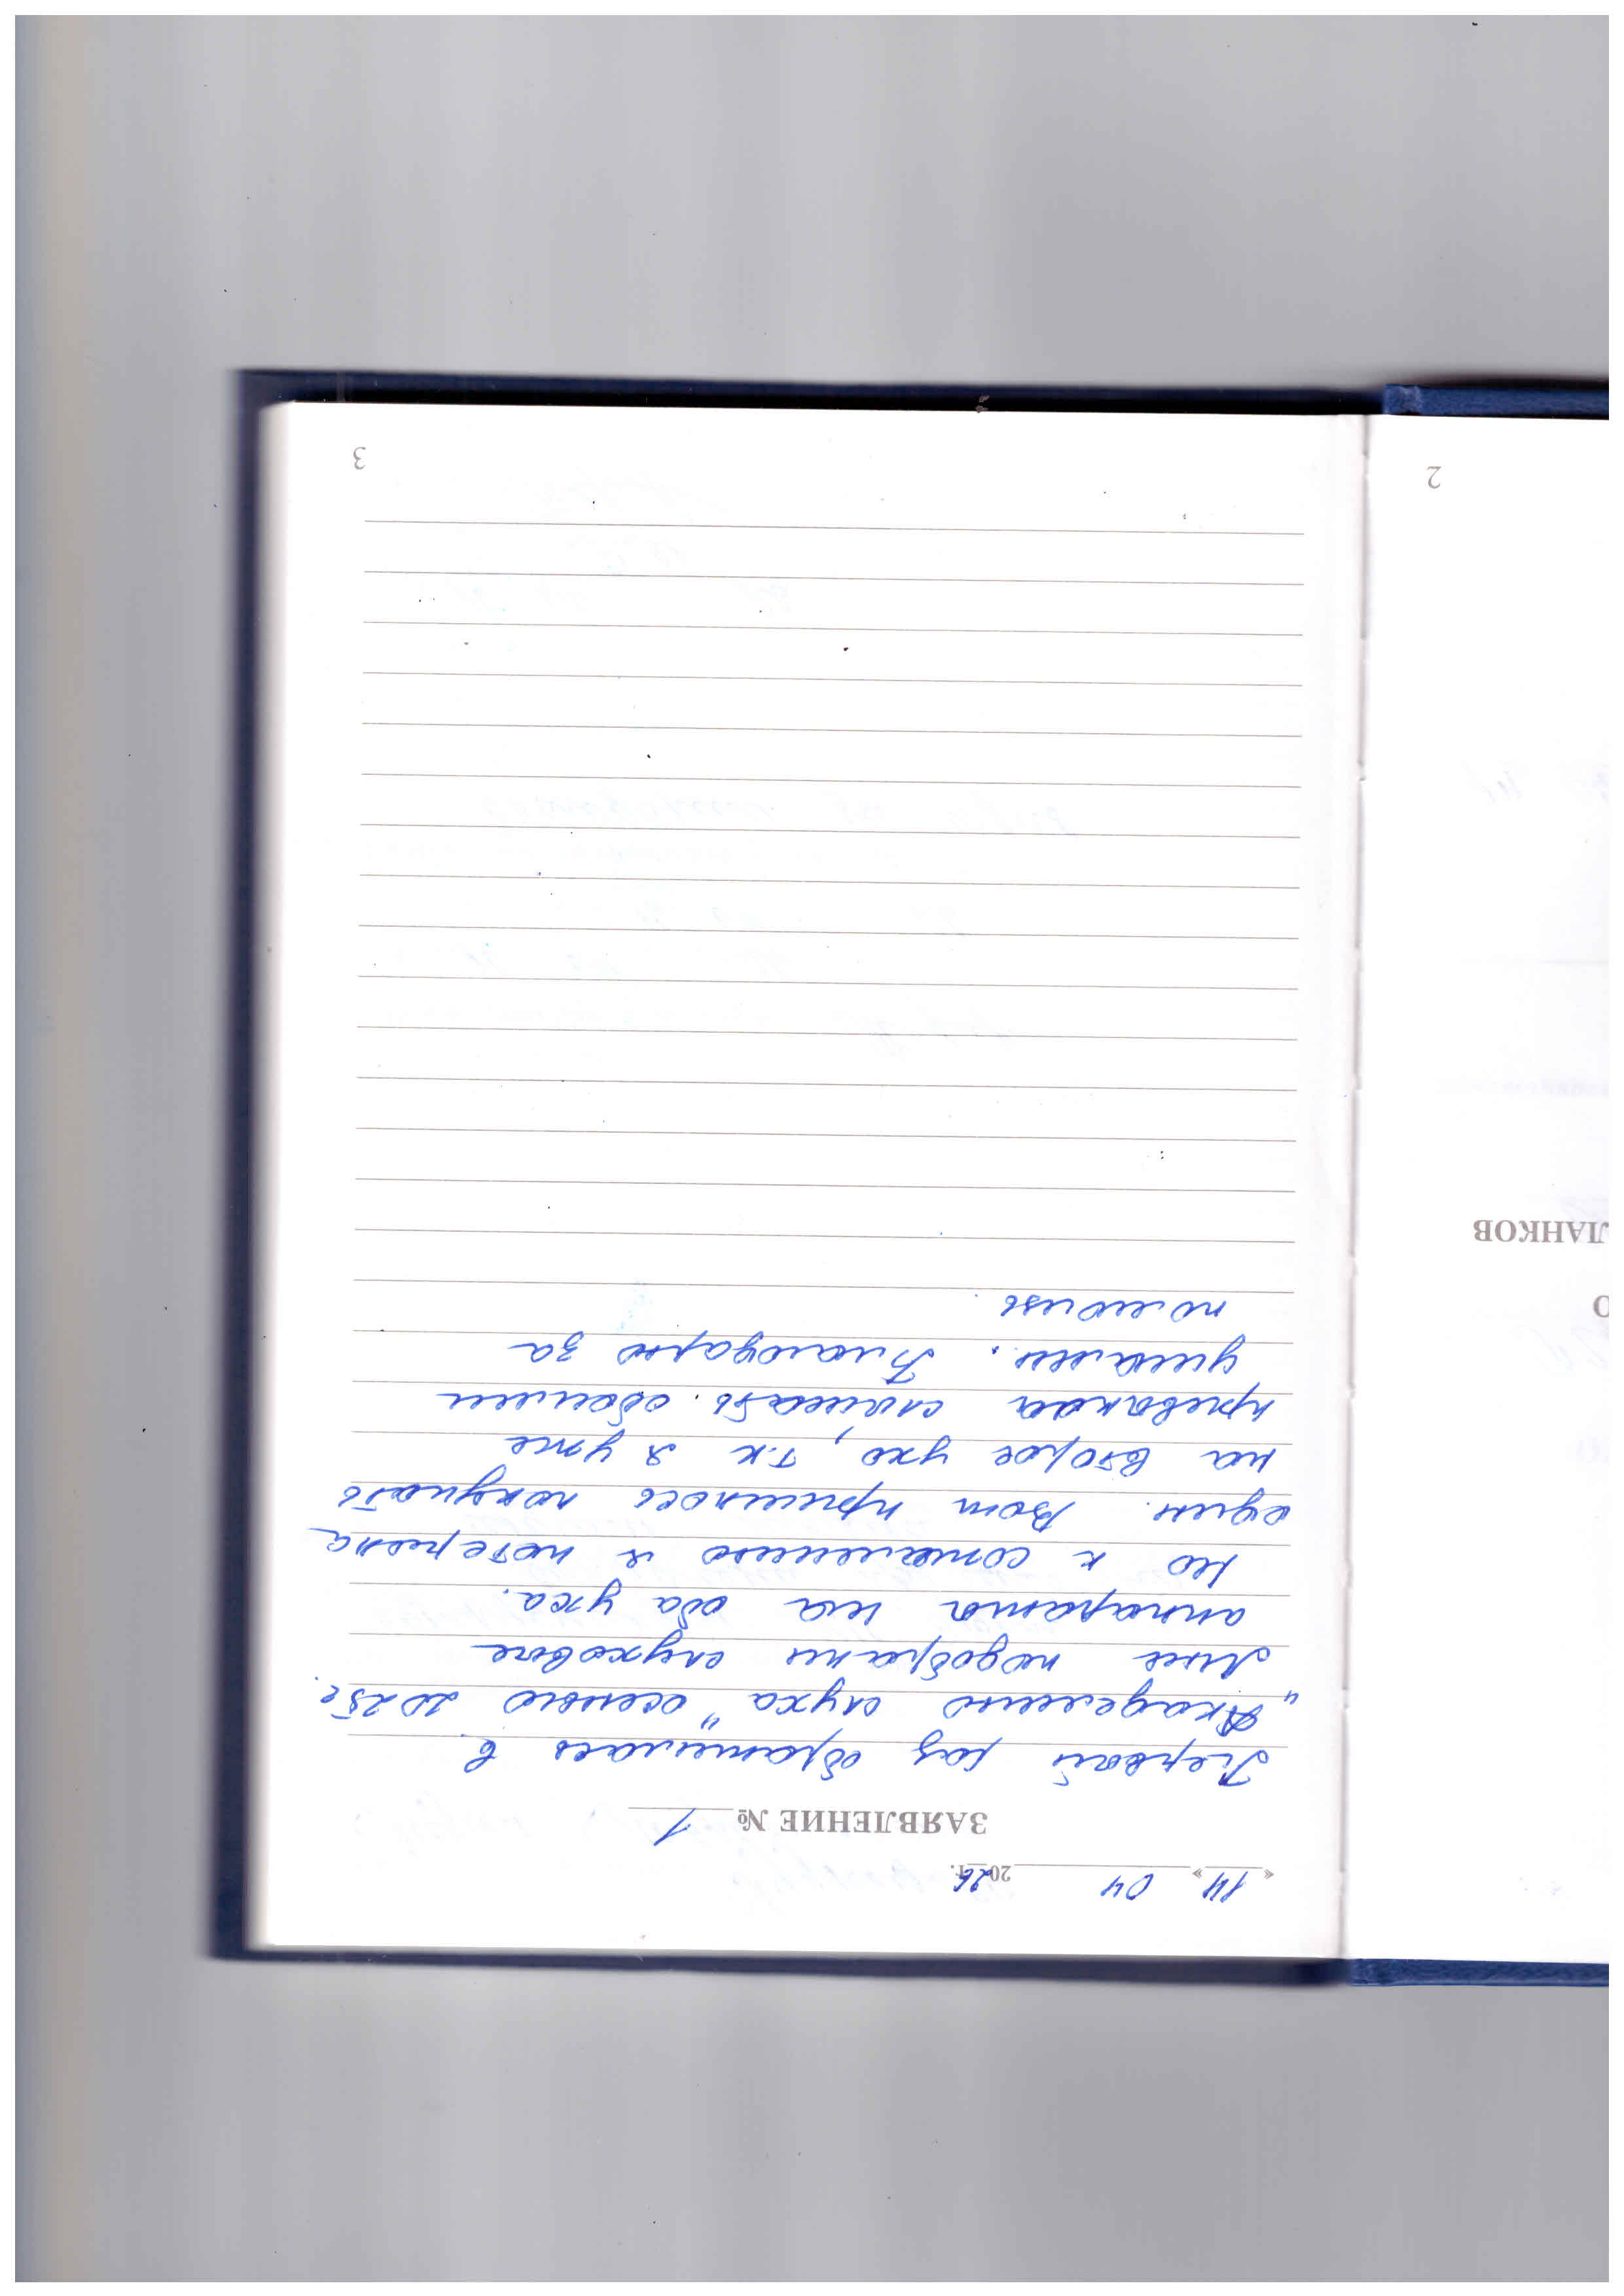 « 14 » 04 2026 г.
ЗАЯВЛЕНИЕ № 1
Первый раз обратилась в
"Академию слуха" осенью 2025г.
Мне подобрали слуховые
аппараты на оба уха.
Но к сожалению я потеряла
один. Вот пришлось покупать
на второе ухо, т.к я уже
привыкла слышать обоими
ушами. Благодарю за
помощь.
3
ЛАНКОВ
2